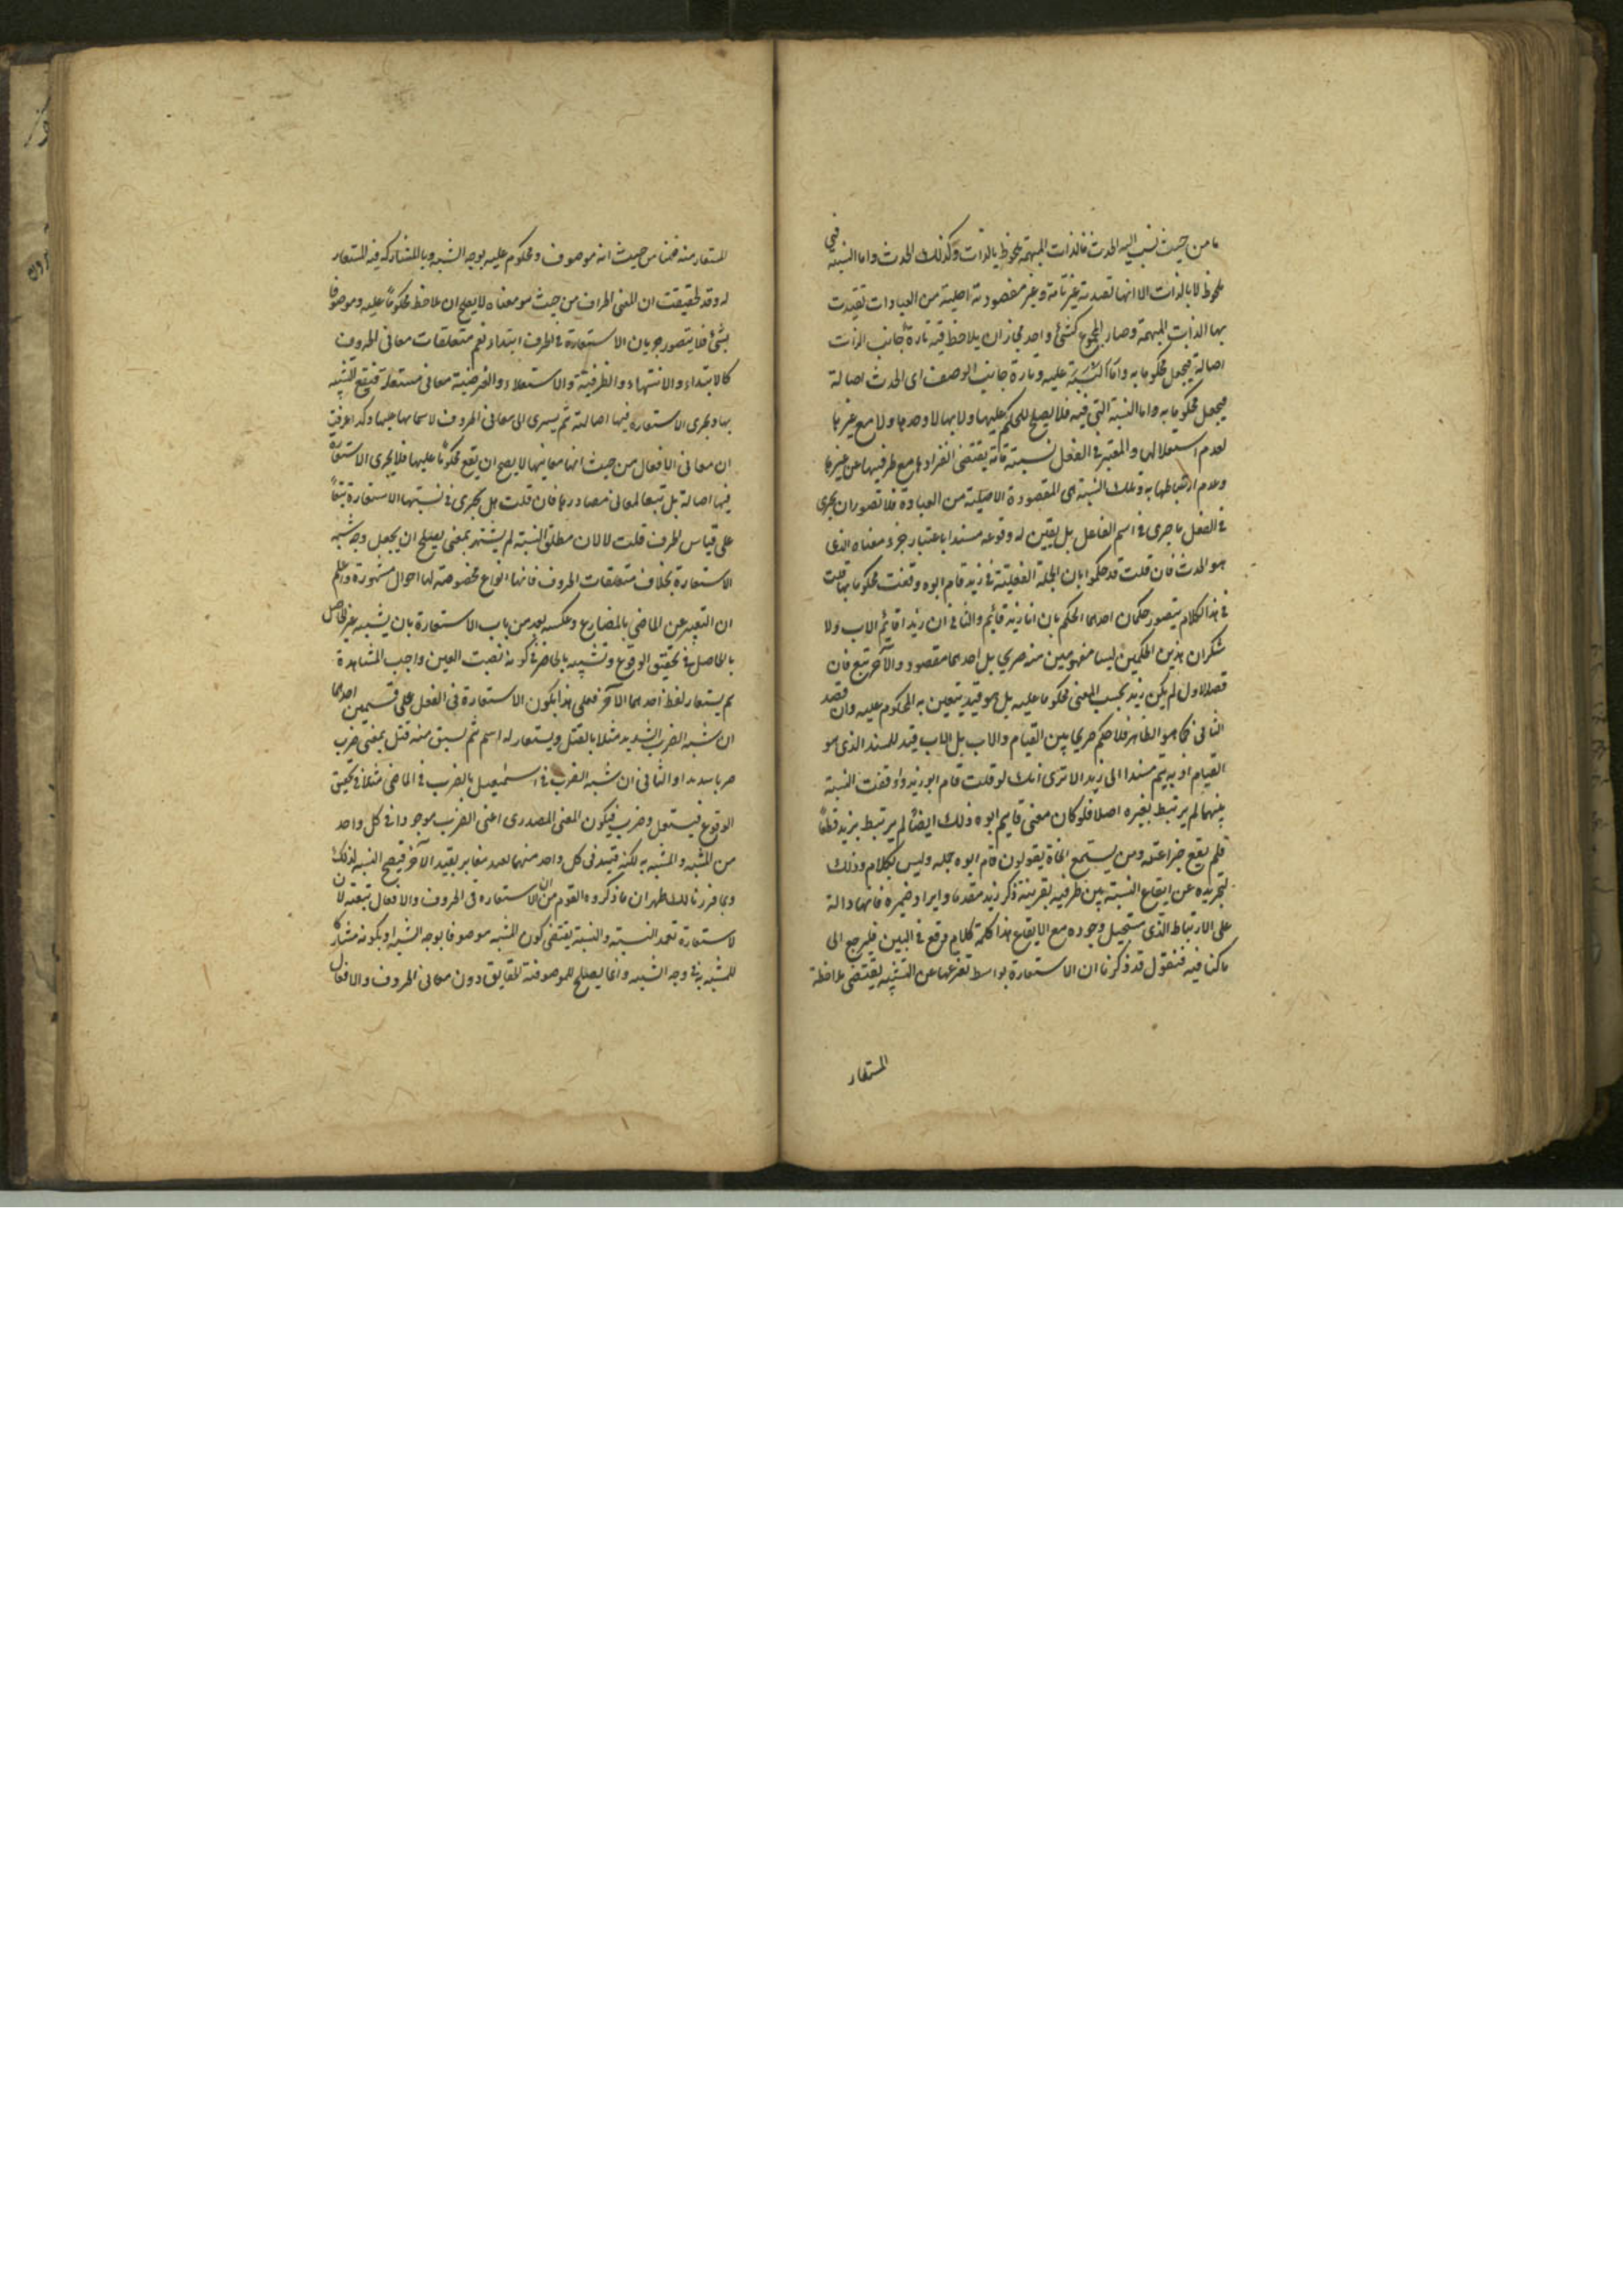 ما من حيث نسب اليه الحدث فالذات المبهمة ملحوظ بالذات وكذلك الحدث واما النسبة فهي
ملحوظ لا بالذات الا انها تقييدية غير تامة وغير مقصودة اصلية من العبارات تقيدت
بها الذات المبهمة وصار المجموع كشئ واحد فجاز ان يلاحظ فيه تارة جانب الذات
اصالة فيجعل محكوما به واما النسبة عليه وتارة جانب الوصف اى الحدث اصالة
فيجعل محكوما به واما النسبة التى فيه فلا يصلح للحكم عليها ولا بها لا وحدها ولا مع غيرها
لعدم استعلالها والمعتبر فى الفعل نسبة تامة يقتضى انفرادها مع طرفيها عن غيرها
وعدم ارتباطها به وتلك النسبة هى المقصودة الاصلية من العبارة فلا تصور ان يجرى
فى الفعل ما جرى فى اسم الفاعل بل يتعين له وقوعه مسندا باعتبار جزء معناه الذى
هو الحدث فان قلت قد حكموا بان الجملة الفعلية فى زيد قام ابوه وقعت محكوما بها قلت
فى هذا الكلام يتصور حكمان احدهما الحكم بان ابا زيد قائم والثانى ان زيدا قائم الاب ولا
شك ان هذين الحكمين ليسا مفهومين منه صريحا بل احدهما مقصود والآخر تبع فان
قصد الاول لم يكن زيد بحسب المعنى محكوما عليه بل هو قيد يتعين به المحكوم عليه وان قصد
الثانى كما هو الظاهر فلا حكم صريحا بين القيام والاب بل الاب قيد للمسند الذى هو
القيام اذ به يتم مسندا الى زيد الا ترى انك لو قلت قام ابو زيد واوقعت النسبة
بينهما لم يرتبط بغيره اصلا فلو كان معنى قايم ابوه ذلك ايضا لم يرتبط بزيد قطعا
فلم يقع خبرا عنه ومن يستمع النحاة يقولون قام ابوه جملة وليس بكلام وذلك
لتجريده عن ايقاع النسبة بين طرفيه بقرينة ذكر زيد مقدما وايراد ضميره فانها دالة
على الارتباط الذى يستحيل وجوده مع الايقاع هذا كله كلام وقع فى البين فليرجع الى
ما كنا فيه فنقول قد ذكرنا ان الاستعارة بواسط تفرعها عن التشبيه يقتضى ملاحظة
المستعار
المستعار منه ضمنا من حيث انه موصوف ومحكوم عليه بوجه الشبه وبالمشاركة فيه للمستعار
له وقد تحققت ان المعنى الحرف من حيث هو معناه لا يصلح ان يلاحظ محكوما عليه وموصوفا
بشئ فلا يتصور جريان الاستعارة فى الحرف ابتداء نعم متعلقات معانى الحروف
كالابتداء والانتهاء والظرفية والاستعلاء والغرضية معانى مستعلة فيقع التشبيه
بها ويجرى الاستعارة فيها اصالة ثم يسرى الى معانى الحروف عرفت
ان معانى الافعال من حيث انها معانيها لا يصح ان يقع محكوما عليها فلا يجرى الاستعارة
فيها اصالة بل تبعا لمعانى مصادرها فان قلت هل يجرى فى نسبتها الاستعارة تبعا
على قياس الحرف قلت لا لان مطلق النسبة لم يشتهر بمعنى يصلح ان يجعل وجه شبه
الاستعارة بخلاف متعلقات الحروف فانها انواع مخصوصة لها احوال مشهورة واعلم
ان التعبير عن الماضى بالمضارع وعكسه يعد من باب الاستعارة بان يشبه غير الحاصل
بالحاصل فى تحقق الوقوع وتشبيه بالحاضر فى كونه نصب العين واجب المشاهدة
ثم يستعار لفظ احدهما الآخر فعلى هذا يكون الاستعارة فى الفعل على قسمين احدهما
ان شبه الضرب الشديد مثلا بالقتل ويستعار له اسم ثم يسبق منه قتل بمعنى ضرب
ضربا شديدا والثانى ان شبه الضرب فى المستقبل بالضرب فى الماضى مثلا فى تحقيق
الوقوع فيستعمل وضرب فيكون المعنى المصدرى اعنى الضرب موجودا فى كل واحد
من المشبه والمشبه به لكنه قيد فى كل واحد منهما بقيد مغاير بقيد الآخر فيصح التشبيه لذلك
وبما قررنا لك ظهر ان ما ذكروه القوم من ان الاستعارة فى الحروف والافعال تبعية لان
لاستعارة تعمد التشبيه والتشبيه يقتضى كون المشبه موصوفا بوجه الشبه او بكونه مشاركا
للمشبه به فى وجه الشبه وانما يصلح للموصوفية الحقايق دون معانى الحروف والافعال